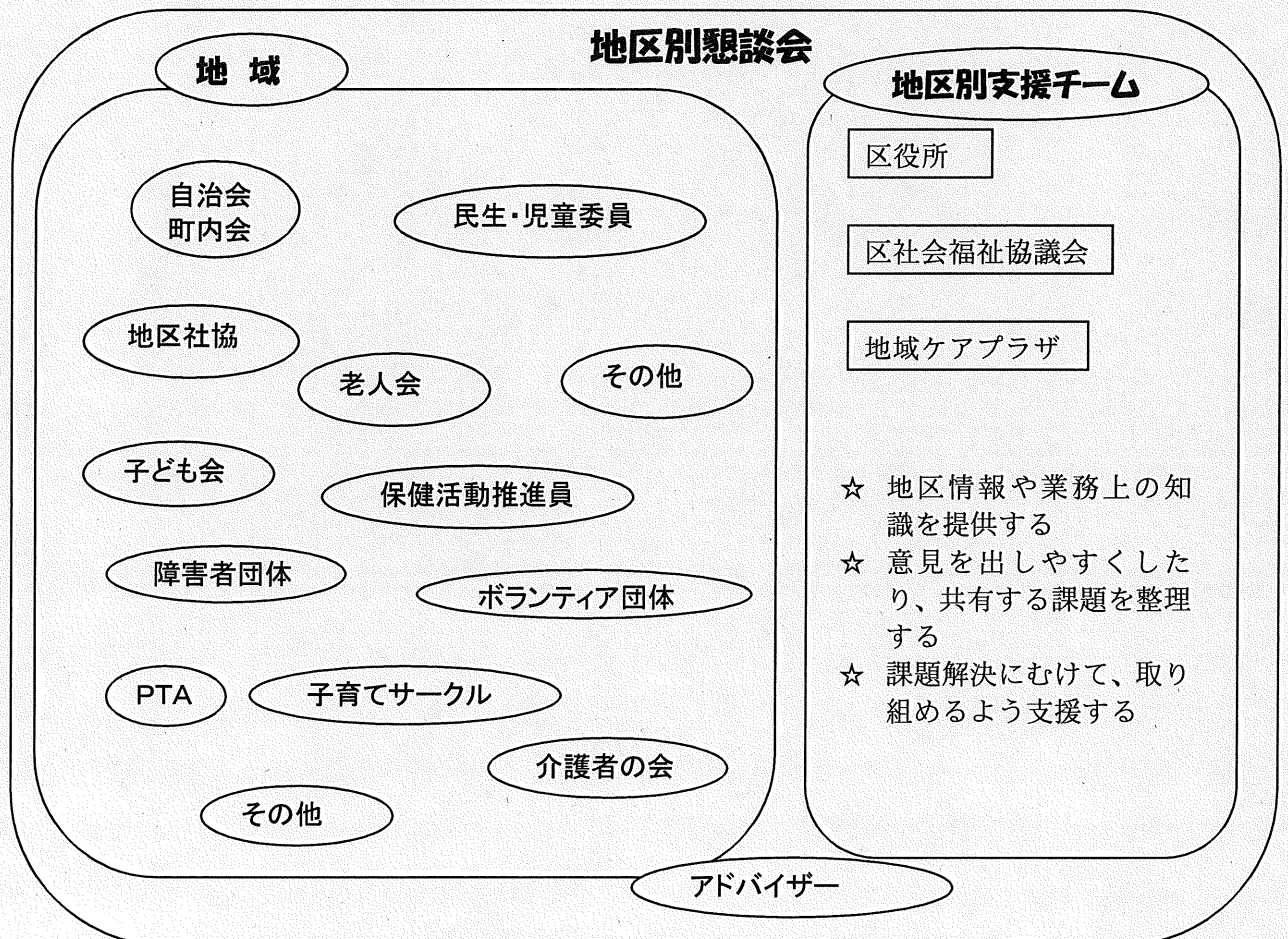 地区別懇談会
地 域
自治会
町内会
民生・児童委員
地区社協
老人会
その他
子ども会
保健活動推進員
障害者団体
ボランティア団体
PTA
子育てサークル
介護者の会
その他
地区別支援チーム
区役所
区社会福祉協議会
地域ケアプラザ
☆ 地区情報や業務上の知
識を提供する
☆ 意見を出しやすくした
り、共有する課題を整理
する
☆ 課題解決にむけて、取り
組めるよう支援する
アドバイザー